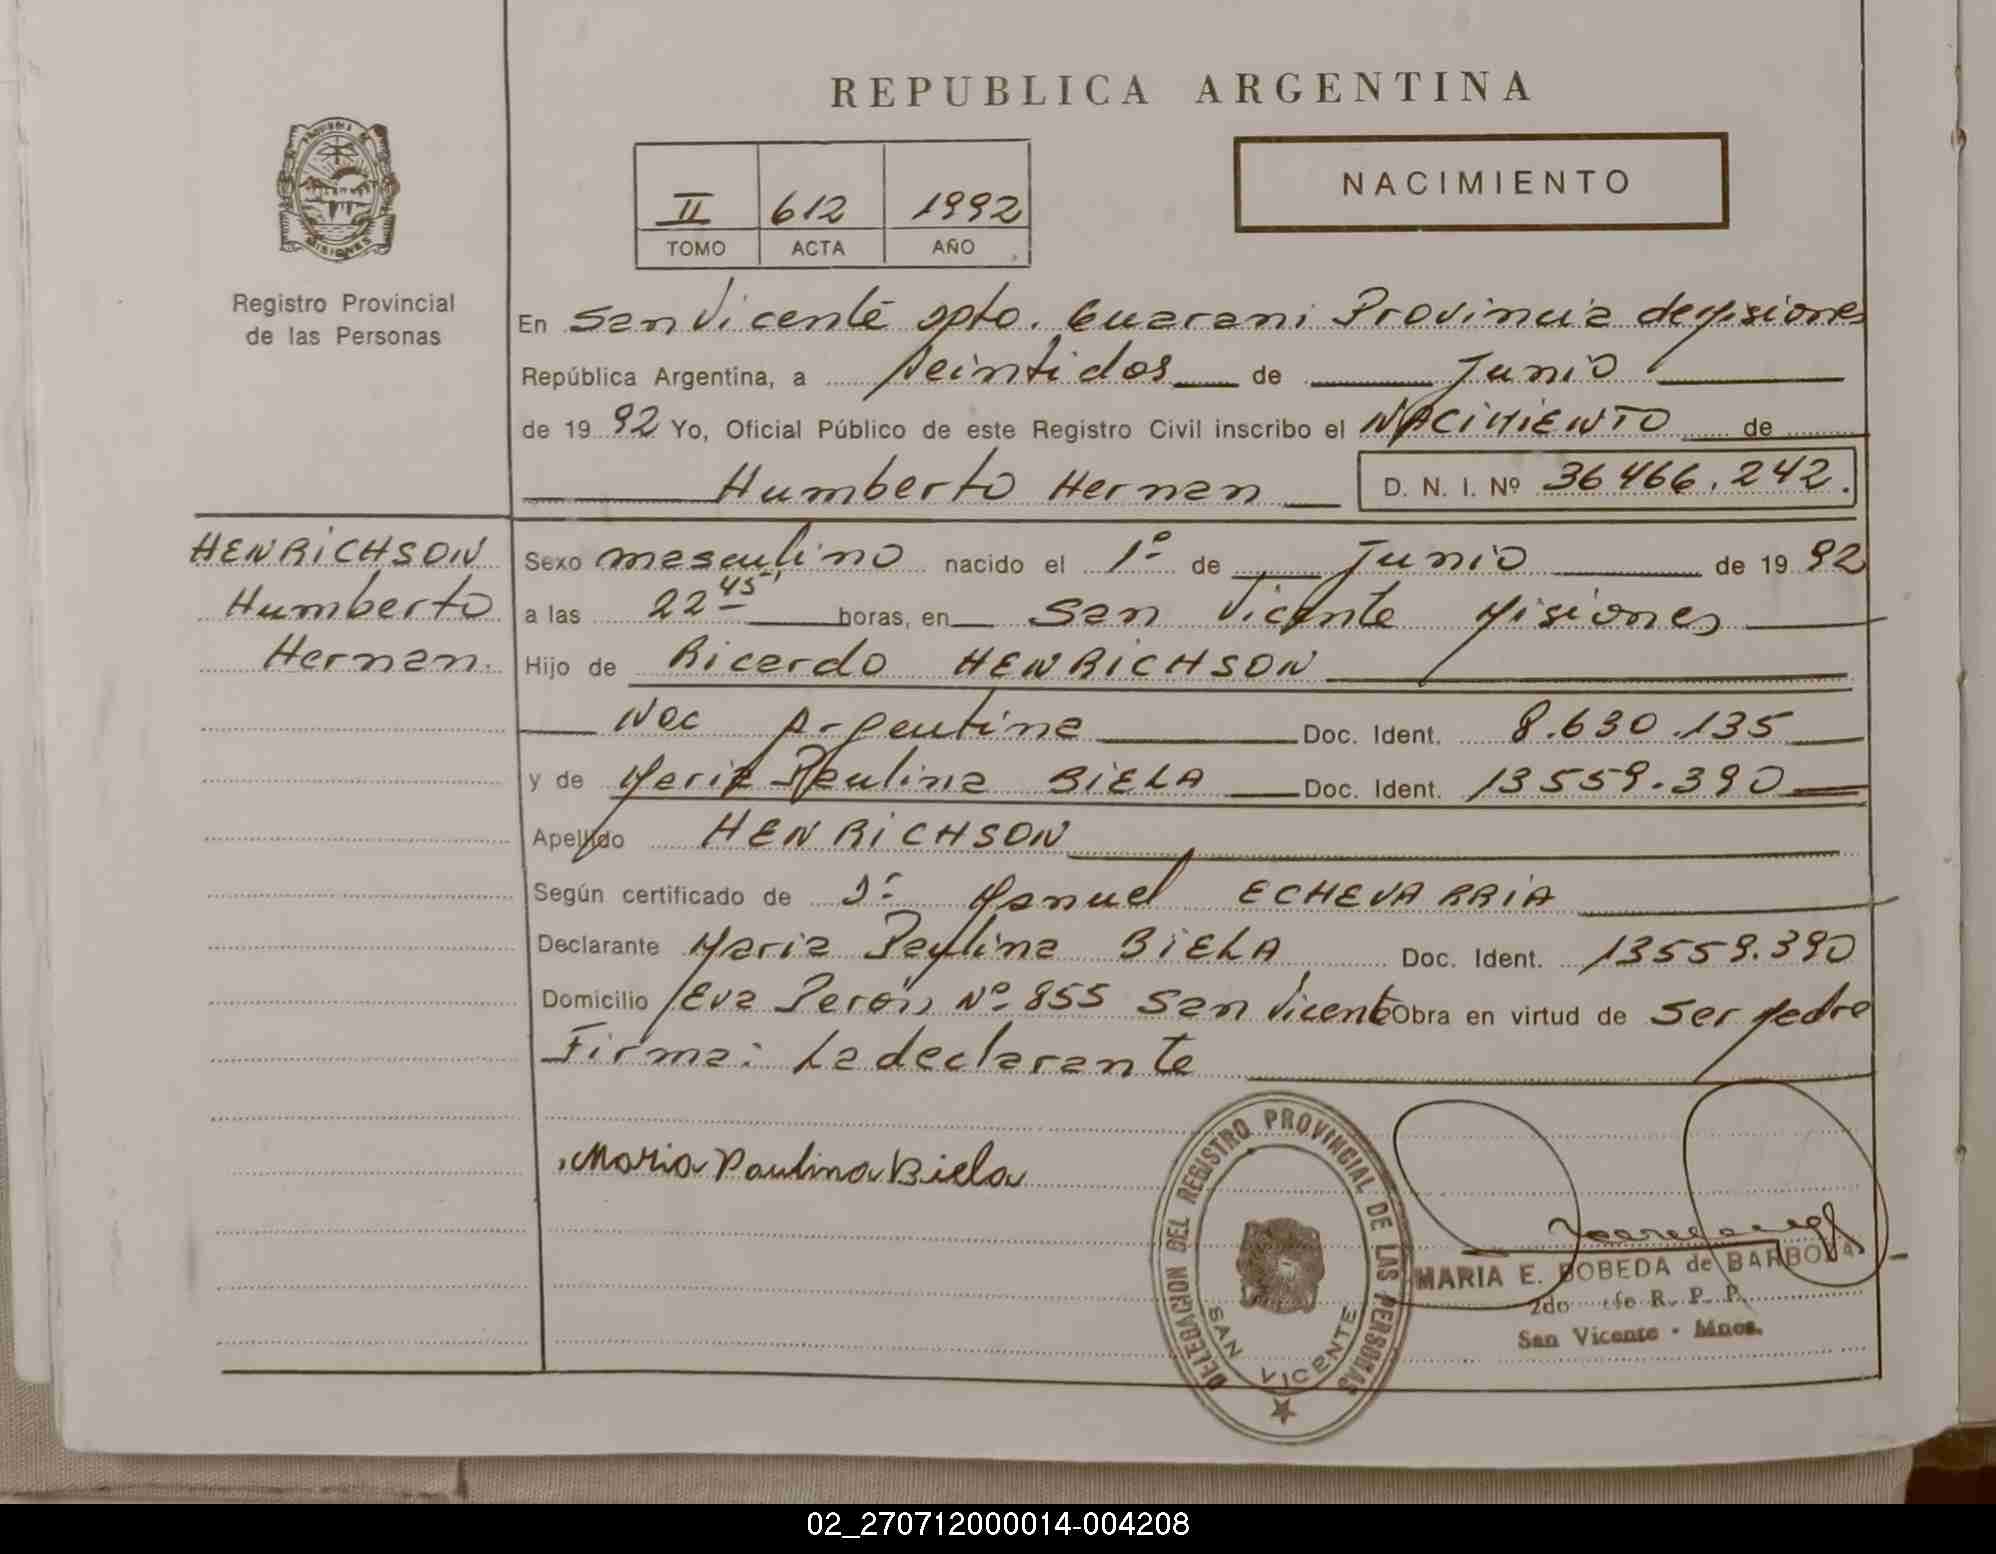 REPUBLICA ARGENTINA
NACIMIENTO
II 612 1992
TOMO ACTA AÑO
PROVINCIA DE
MISIONES
Registro Provincial
de las Personas
En San Vicente Dpto. Guarani Provincia de Misiones
República Argentina, a Veintidos de Junio
de 1992 Yo, Oficial Público de este Registro Civil inscribo el NACIMIENTO de
Humberto Hernan D. N. I. Nº 36466.242.
HENRICHSON
Humberto
Hernan.
Sexo masculino nacido el 1º de Junio de 1992
a las 22 45 horas, en San Vicente Misiones
Hijo de Ricardo HENRICHSON
Nac Argentina Doc. Ident. 8.630.135
y de Maria Paulina BIELA Doc. Ident. 13559.390
Apellido HENRICHSON
Según certificado de Dr Manuel ECHEVARRIA
Declarante Maria Paulina BIELA Doc. Ident. 13559.390
Domicilio Eva Perón Nº 855 San Vicente Obra en virtud de Ser Madre
Firma: La declarante
Maria Paulina Biela
DELEGACION DEL REGISTRO PROVINCIAL DE LAS PERSONAS
SAN VICENTE
MARIA E. BOBEDA de BARBOZA
2do Jefe R. P. P.
San Vicente - Mnes.
02_270712000014-004208